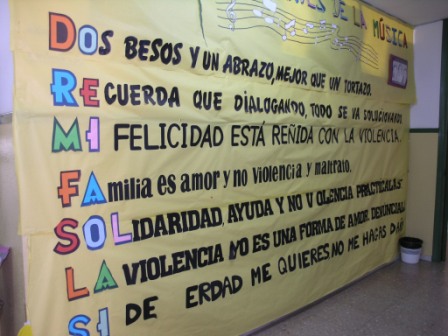 DE LA MÚSICA
DOS BESOS Y UN ABRAZO, MEJOR QUE UN TORTAZO.
RECUERDA QUE DIALOGANDO, TODO SE VA SOLUCIONANDO
MI FELICIDAD ESTÁ REÑIDA CON LA VIOLENCIA.
FAMilia es amor y no violencia y maltrato.
SOLIDARIDAD, AYUDA Y NO V OLENCIA PRACTICALAS
LA VIOLENCIA NO ES UNA FORMA DE AMOR. DENUNCIALA
SI DE ERDAD ME QUIERES, NO ME HAGAS DAÑ